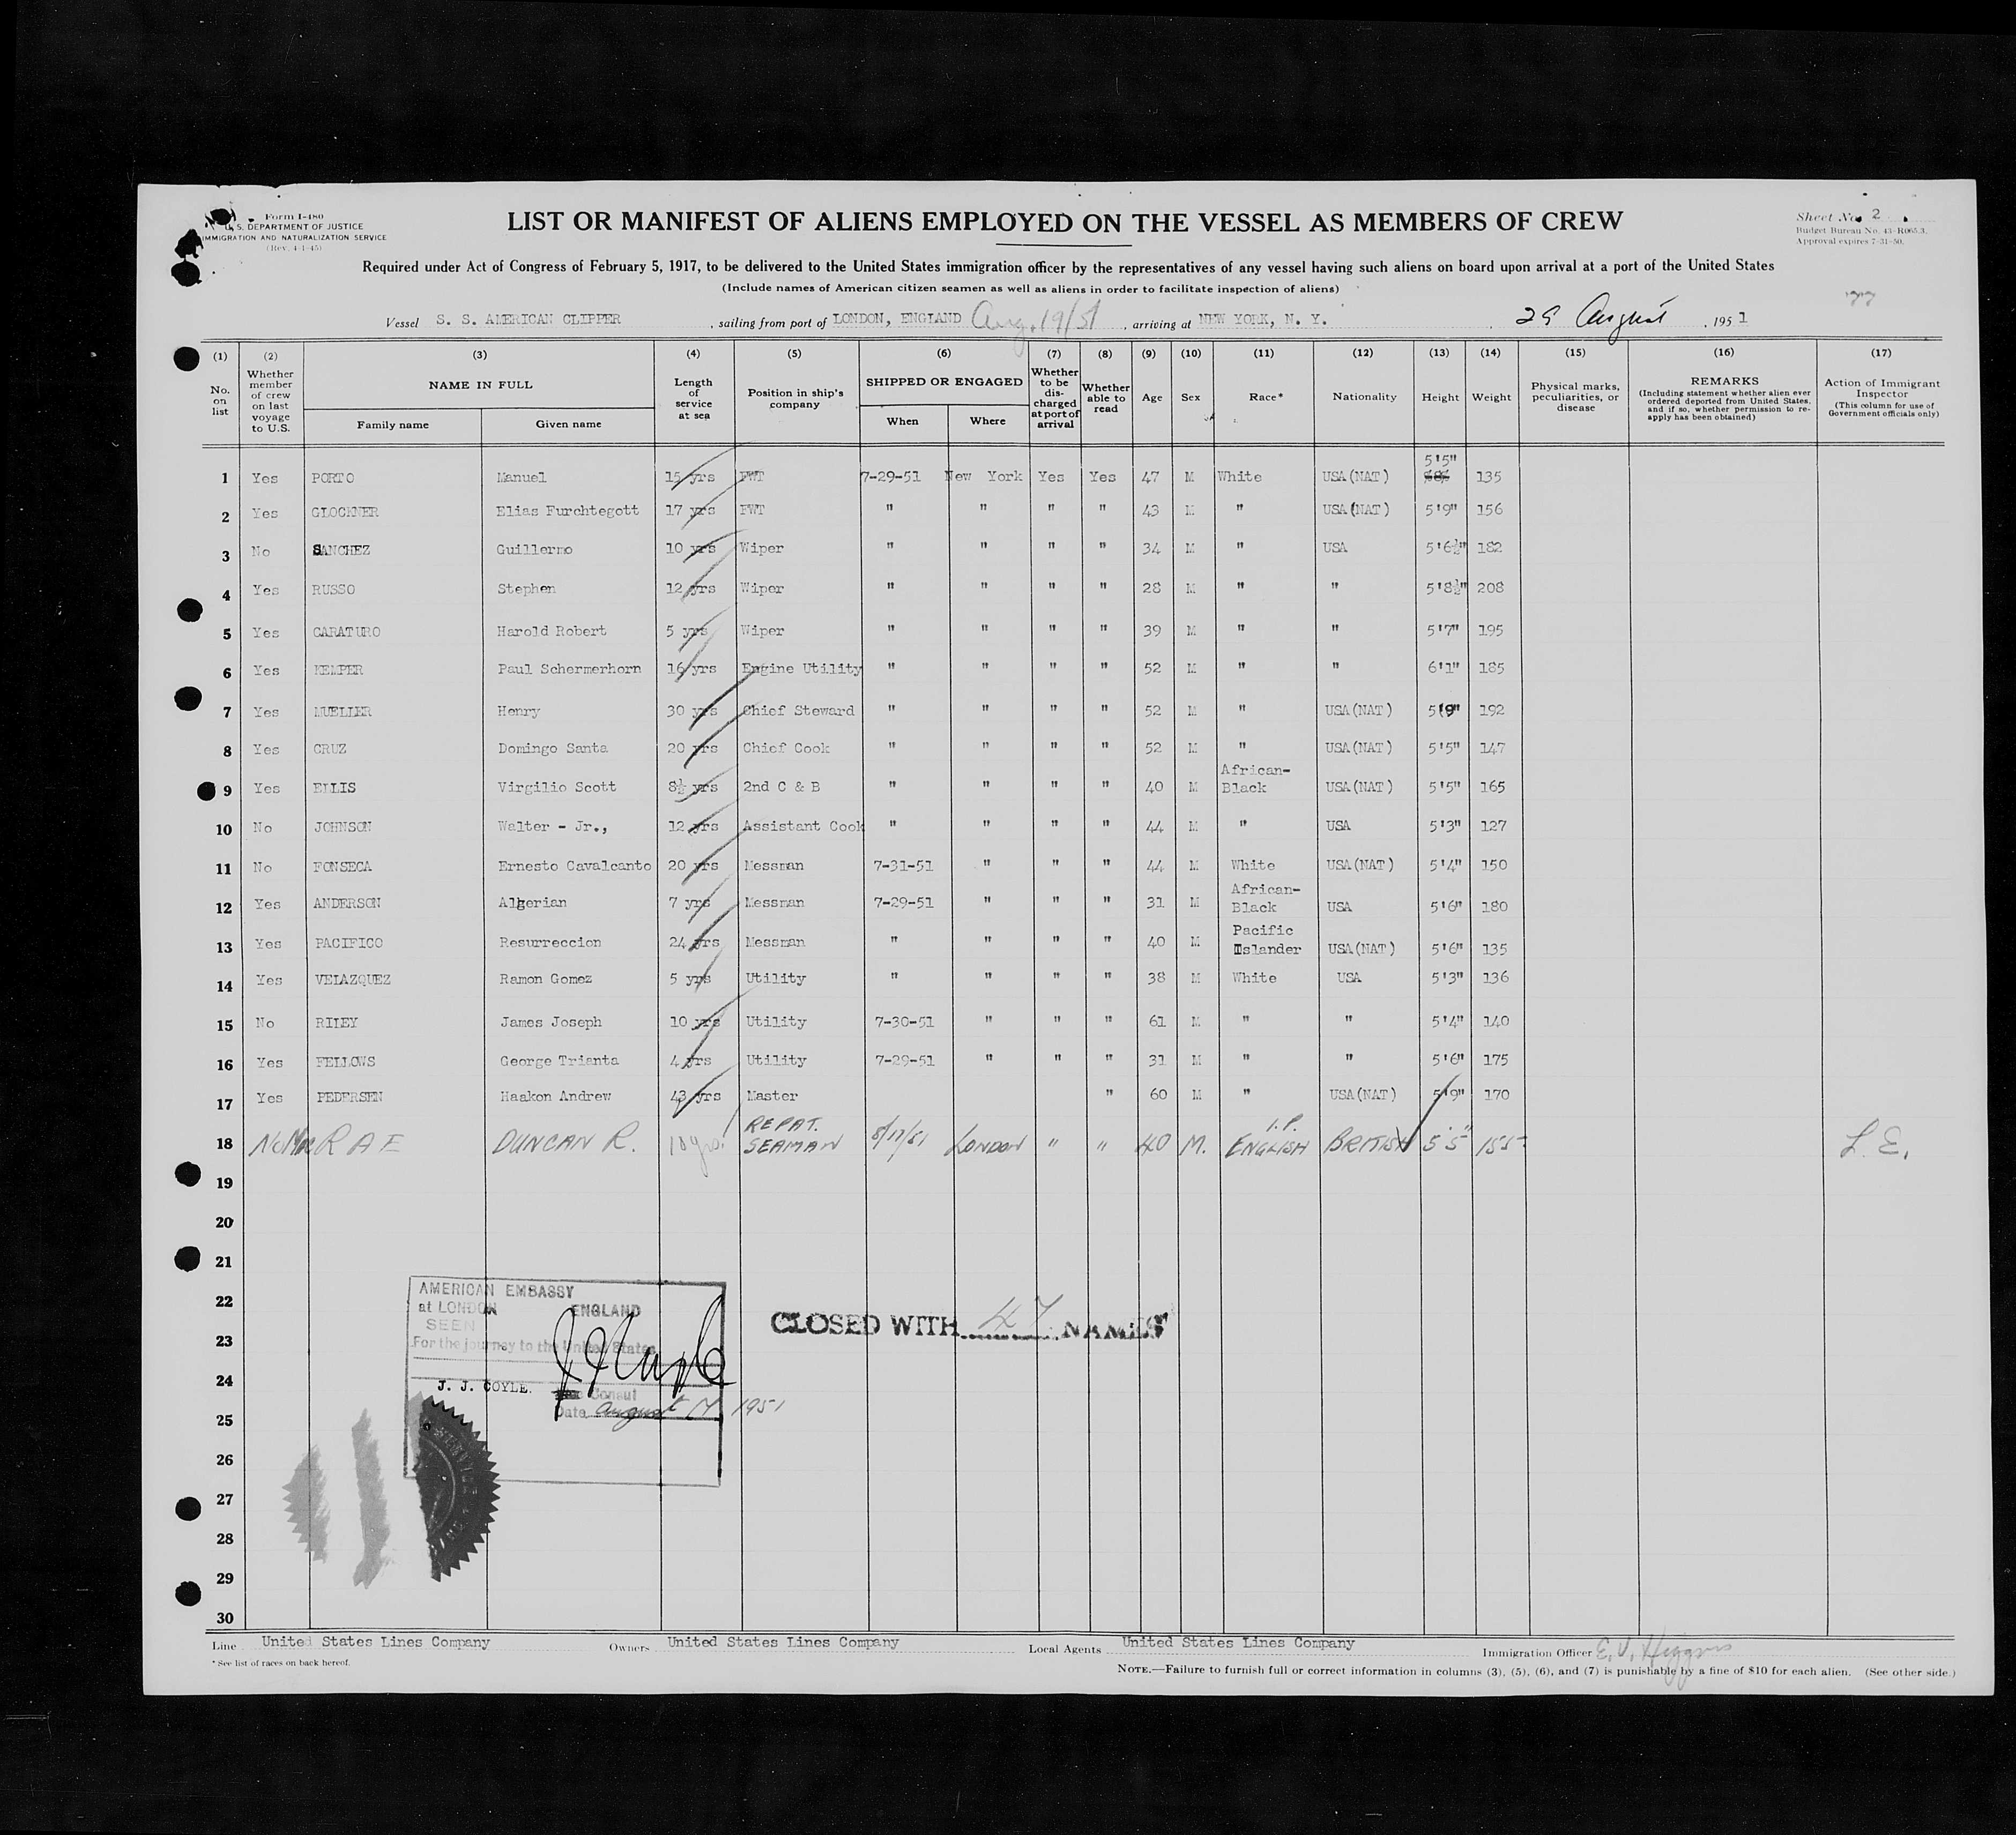 Form I-480
U. S. DEPARTMENT OF JUSTICE
IMMIGRATION AND NATURALIZATION SERVICE
(Rev. 4-1-45)
LIST OR MANIFEST OF ALIENS EMPLOYED ON THE VESSEL AS MEMBERS OF CREW
Sheet No. 2
Budget Bureau No. 43-R065.3.
Approval expires 7-31-50.
Required under Act of Congress of February 5, 1917, to be delivered to the United States immigration officer by the representatives of any vessel having such aliens on board upon arrival at a port of the United States
(Include names of American citizen seamen as well as aliens in order to facilitate inspection of aliens)
Vessel S. S. AMERICAN CLIPPER, sailing from port of LONDON, ENGLAND Aug. 19/51, arriving at NEW YORK, N. Y. 29 August, 1951
(1) No. on list
(2) Whether member of crew on last voyage to U.S.
(3) NAME IN FULL Family name Given name
(4) Length of service at sea
(5) Position in ship's company
(6) SHIPPED OR ENGAGED When Where
(7) Whether to be discharged at port of arrival
(8) Whether able to read
(9) Age
(10) Sex
(11) Race*
(12) Nationality
(13) Height
(14) Weight
(15) Physical marks, peculiarities, or disease
(16) REMARKS (Including statement whether alien ever ordered deported from United States, and if so, whether permission to re-apply has been obtained)
(17) Action of Immigrant Inspector (This column for use of Government officials only)
1 Yes PORTO Manuel 15 yrs FWT 7-29-51 New York Yes Yes 47 M White USA(NAT) 5'5" 135
2 Yes GLOCKNER Elias Furchtegott 17 yrs FWT " " " " 43 M " USA(NAT) 5'9" 156
3 No SANCHEZ Guillermo 10 yrs Wiper " " " " 34 M " USA 5'6½" 182
4 Yes RUSSO Stephen 12 yrs Wiper " " " " 28 M " " 5'8½" 208
5 Yes CARATURO Harold Robert 5 yrs Wiper " " " " 39 M " " 5'7" 195
6 Yes KEMPER Paul Schermerhorn 16 yrs Engine Utility " " " " 52 M " " 6'1" 185
7 Yes MUELLER Henry 30 yrs Chief Steward " " " " 52 M " USA(NAT) 5'9" 192
8 Yes CRUZ Domingo Santa 20 yrs Chief Cook " " " " 52 M " USA(NAT) 5'5" 147
9 Yes ELLIS Virgilio Scott 8½ yrs 2nd C & B " " " " 40 M African-Black USA(NAT) 5'5" 165
10 No JOHNSON Walter - Jr., 12 yrs Assistant Cook " " " " 44 M " USA 5'3" 127
11 No FONSECA Ernesto Cavalcanto 20 yrs Messman 7-31-51 " " " 44 M White USA(NAT) 5'4" 150
12 Yes ANDERSON Algerian 7 yrs Messman 7-29-51 " " " 31 M African-Black USA 5'6" 180
13 Yes PACIFICO Resurreccion 24 yrs Messman " " " " 40 M Pacific Islander USA(NAT) 5'6" 135
14 Yes VELAZQUEZ Ramon Gomez 5 yrs Utility " " " " 38 M White USA 5'3" 136
15 No RILEY James Joseph 10 yrs Utility 7-30-51 " " " 61 M " " 5'4" 140
16 Yes FELLOWS George Trianta 4 yrs Utility 7-29-51 " " " 31 M " " 5'6" 175
17 Yes PEDERSEN Haakon Andrew 43 yrs Master " 60 M " USA(NAT) 5'9" 170
18 No McRAE DUNCAN R. 10 yrs. REPAT. SEAMAN 8/17/51 LONDON " " 40 M. ENGLISH BRITISH 5'5" 155 L. E.
19
20
21
22
23
24
25
26
27
28
29
30
AMERICAN EMBASSY
at LONDON ENGLAND
SEEN
For the journey to the United States
J. J. COYLE.
Consul
Date August 17 1951
CLOSED WITH 47 NAMES
Line United States Lines Company Owners United States Lines Company Local Agents United States Lines Company Immigration Officer E. V. Higgins
* See list of races on back hereof.
NOTE.—Failure to furnish full or correct information in columns (3), (5), (6), and (7) is punishable by a fine of $10 for each alien. (See other side.)